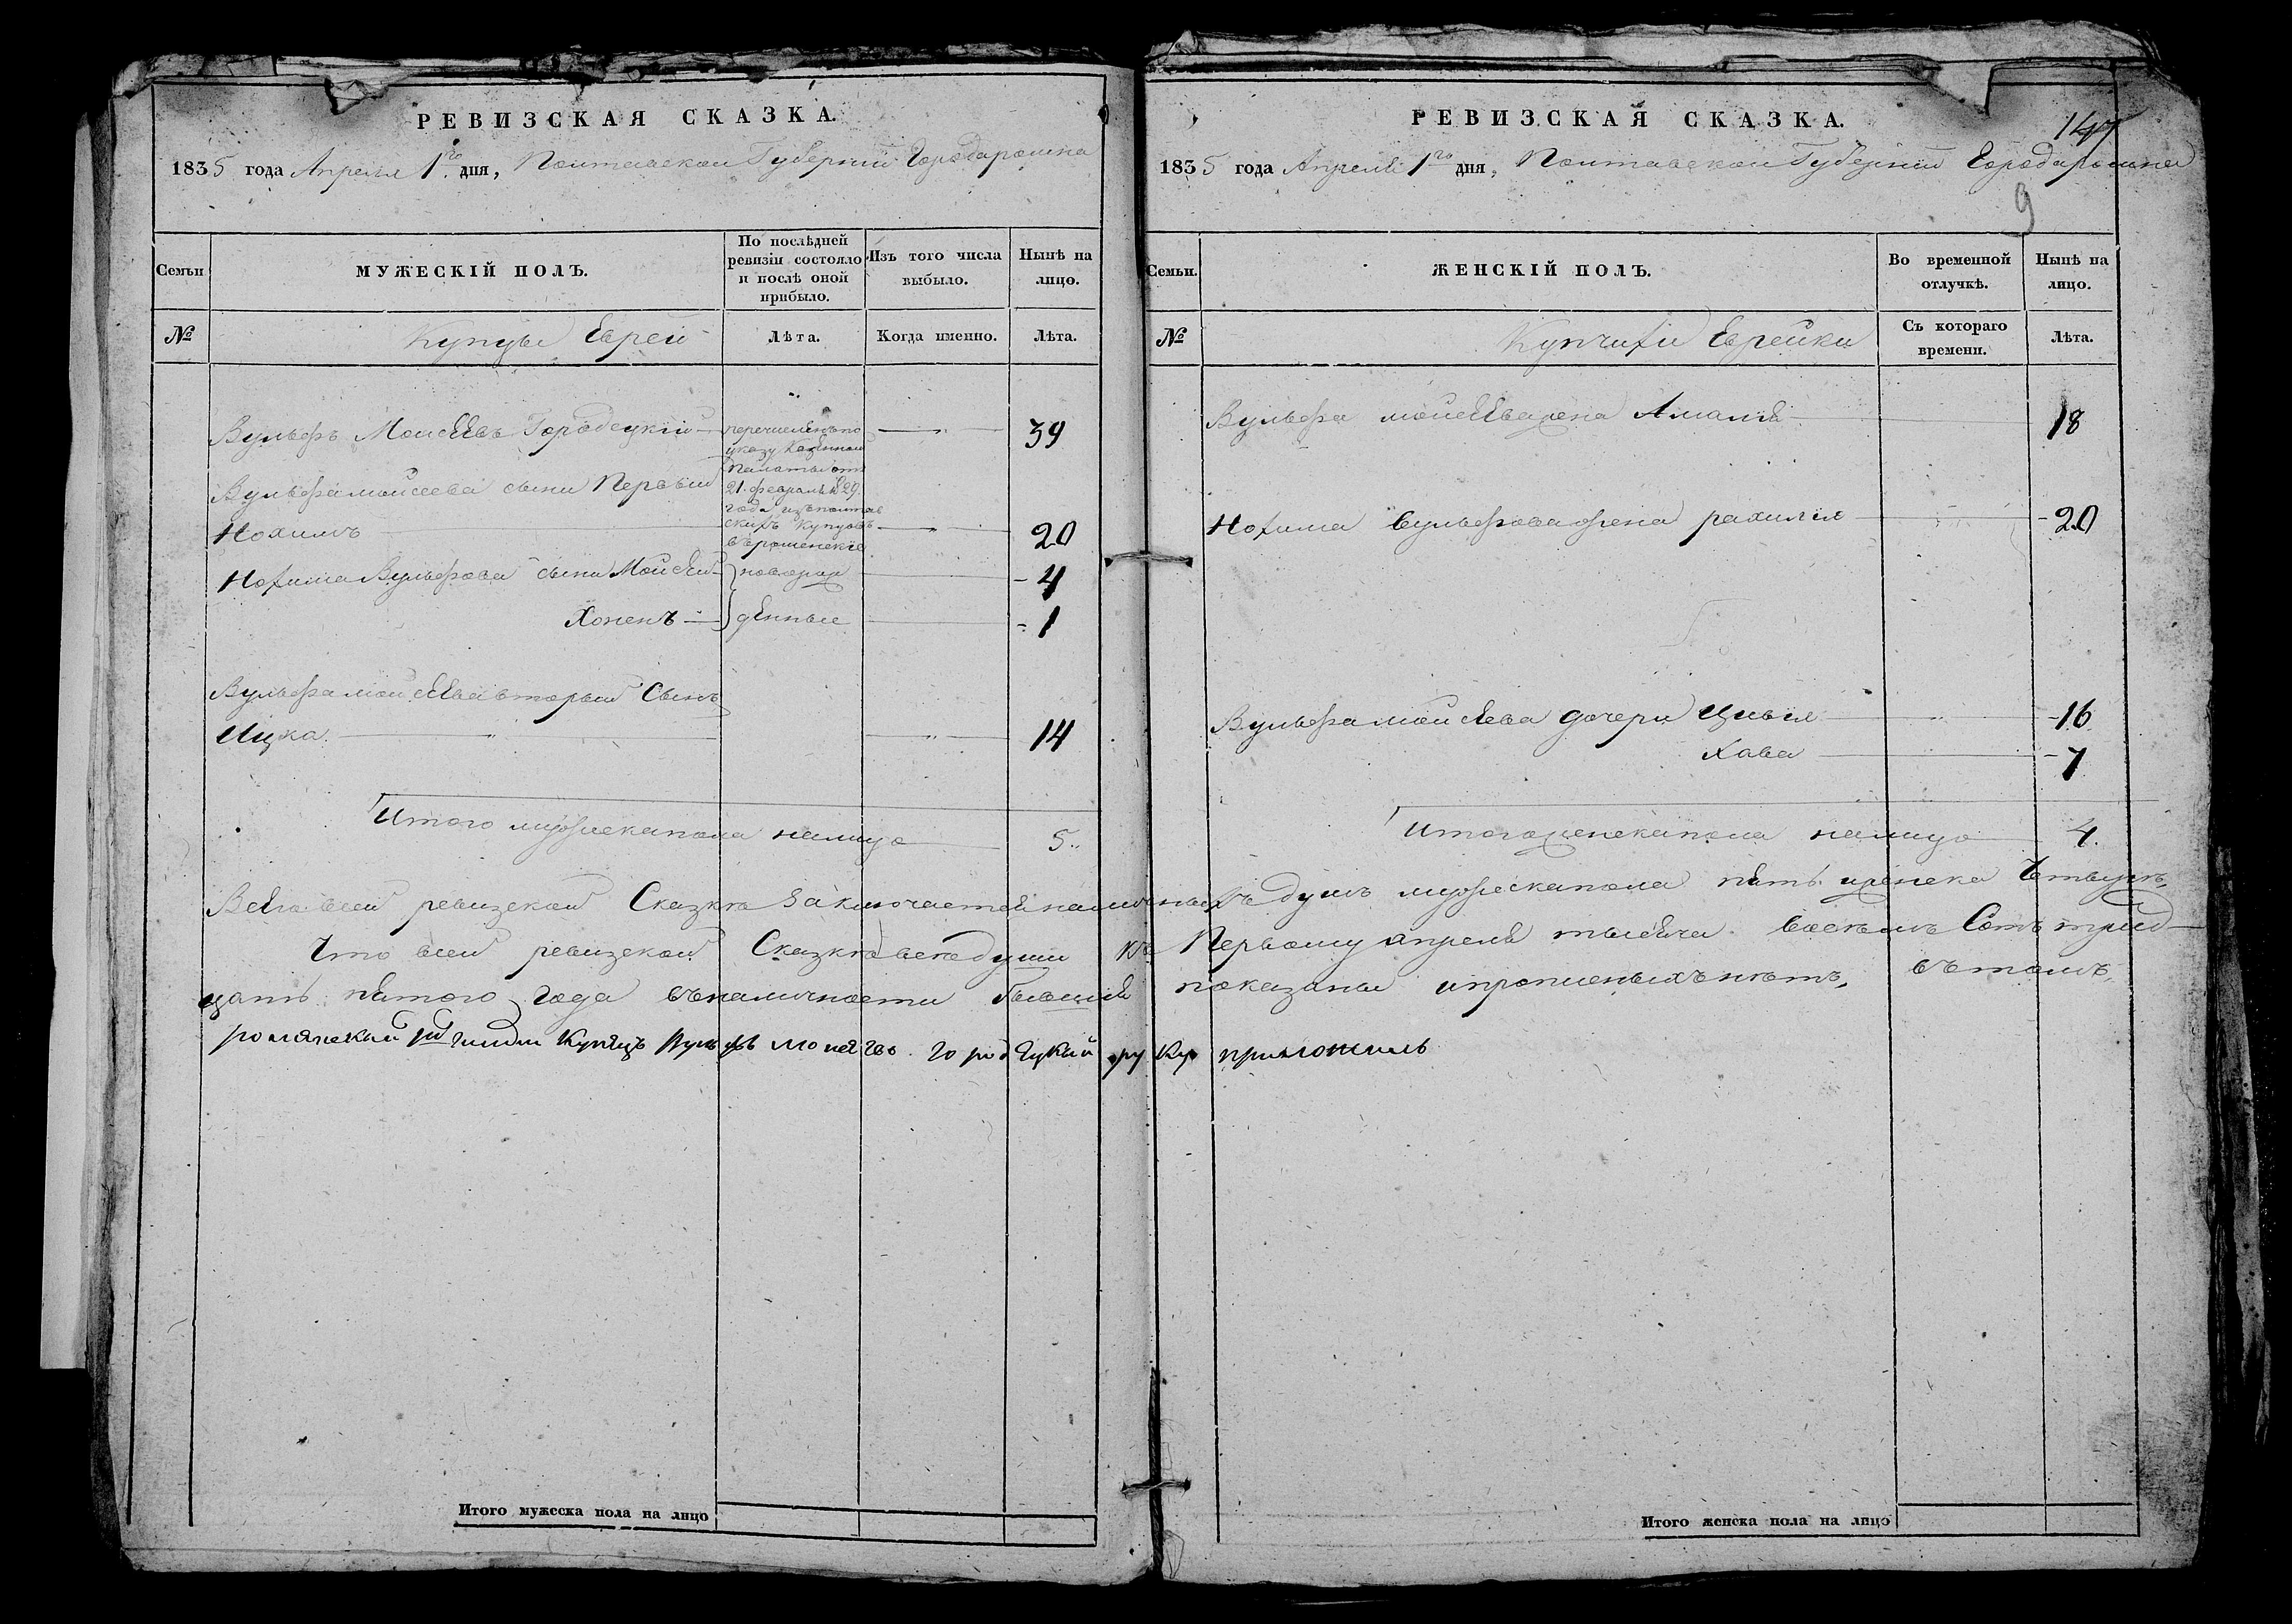 РЕВИЗСКАЯ СКАЗКА.
1835 года Апреля 1го дня, Полтавской Губернии Города Ромна
Семьи
МУЖЕСКІЙ ПОЛЪ.
По послѣдней
ревизіи состояло
и послѣ оной
прибыло.
Изъ того числа
выбыло.
Нынѣ на
лицо.
№
Купцы Евреи
Лѣта.
Когда именно.
Лѣта.
Вульфъ Моисеевъ Городецкій
перечисленъ по
указу Казенной
Палаты отъ
21. февраля 1829
года изъ полтав
скихъ купцовъ
въ роменскіе
39
Вульфа Моисеева сыни Первый
Нохимъ
20
Нохима Вульфова сыни Мойсей
новорож
4
Хоненъ
денные
1
Вульфа Мойсеева вторый Сынъ
Ицка.
14
Итого мужеска пола налицо
5.
РЕВИЗСКАЯ СКАЗКА.
147
1835 года Апреля 1го дня, Полтавской Губерніи Города Ромна
9
Семьи.
ЖЕНСКІЙ ПОЛЪ.
Во временной
отлучкѣ.
Нынѣ на
лицо.
№
Купчихи Еврейки
Съ котораго
времени.
Лѣта.
Вульфа мойсеева жена Амалія
18
Нохима Вульфова жена рахиля
20
Вульфа мойсеева дочери Цивья
16
Хава
7
Итого женска пола налицо
4.
Всего всей ревизской Сказкѣ заключается наличныхъ душъ мужеска пола пять и женска Четыре,
Что всей ревизской Сказкѣ все души къ Первому апреля тысяча восемъ Сотъ трид
цать пятого года въ наличности бывшія показаны и прописныхъ нѣтъ, въ томъ
роменский 3й гилдии Купецъ Вульфъ Моисеевъ Городецкий руку приложилъ
Итого мужеска пола на лицо
Итого женска пола на лицо